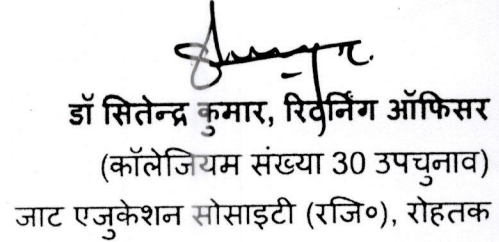 डॉ सितेन्द्र कुमार, रिटर्निंग ऑफिसर
(कॉलेजियम संख्या 30 उपचुनाव)
जाट एजुकेशन सोसाइटी (रजि०), रोहतक